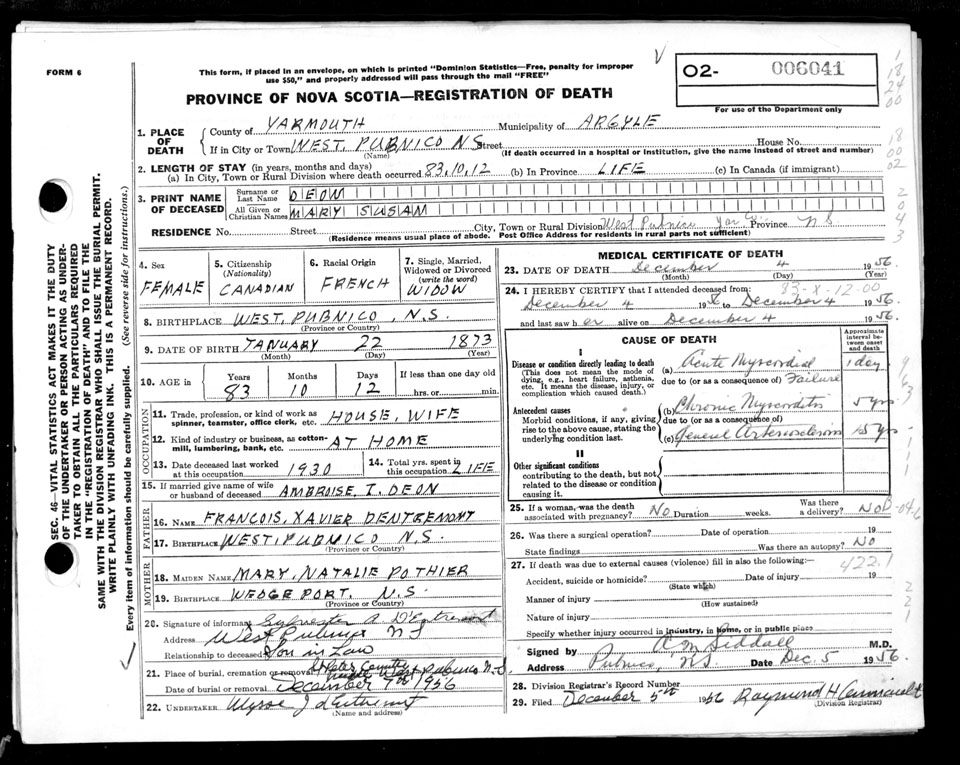 FORM 6
This form, if placed in an envelope, on which is printed "Dominion Statistics—Free, penalty for improper
use $50," and properly addressed will pass through the mail "FREE"
O2- 006041
For use of the Department only
PROVINCE OF NOVA SCOTIA—REGISTRATION OF DEATH
1. PLACE OF DEATH
County of YARMOUTH Municipality of ARGYLE
If in City or Town WEST PUBNICO N.S. Street House No.
(Name) (If death occurred in a hospital or institution, give the name instead of street and number)
2. LENGTH OF STAY (in years, months and days)
(a) In City, Town or Rural Division where death occurred 83,10,12 (b) In Province LIFE (c) In Canada (if immigrant)
3. PRINT NAME OF DECEASED
Surname or Last Name DEON
All Given or Christian Names MARY SUSAN
RESIDENCE No. Street City, Town or Rural Division West Pubnico Yar Co. Province N.S.
(Residence means usual place of abode. Post Office Address for residents in rural parts not sufficient)
4. Sex FEMALE
5. Citizenship (Nationality) CANADIAN
6. Racial Origin FRENCH
7. Single, Married, Widowed or Divorced (write the word) WIDOW
8. BIRTHPLACE WEST, PUBNICO, N.S.
(Province or Country)
9. DATE OF BIRTH JANUARY 22 1873
(Month) (Day) (Year)
10. AGE in Years Months Days If less than one day old
83 10 12 hrs. or min.
OCCUPATION
11. Trade, profession, or kind of work as spinner, teamster, office clerk, etc. HOUSE, WIFE
12. Kind of industry or business, as cotton-mill, lumbering, bank, etc. AT HOME
13. Date deceased last worked at this occupation 1930
14. Total yrs. spent in this occupation LIFE
15. If married give name of wife or husband of deceased AMBROISE. I. DEON
FATHER
16. Name FRANCOIS, XAVIER DENTREMONT
17. Birthplace WEST, PUBNICO N.S.
(Province or Country)
MOTHER
18. Maiden Name MARY, NATALIE POTHIER
19. Birthplace WEDGEPORT. N.S.
(Province or Country)
20. Signature of informant Sylvester A D'Entremont
Address West Pubnico N S
Relationship to deceased Son in Law
21. Place of burial, cremation or removal West Pubnico N.S.
Date of burial or removal December 7th 1956
22. UNDERTAKER Ulysse J d'Entremont
(Name and address)
MEDICAL CERTIFICATE OF DEATH
23. DATE OF DEATH December 4 1956.
(Month) (Day) (Year)
83-X-12.00
24. I HEREBY CERTIFY that I attended deceased from:
December 4 1956 to December 4 1956.
and last saw her alive on December 4 1956.
CAUSE OF DEATH
Approximate interval between onset and death
I
Disease or condition directly leading to death
(This does not mean the mode of dying, e.g., heart failure, asthenia, etc. It means the disease, injury, or complication which caused death.)
(a) Acute Myocardial 1 day
due to (or as a consequence of) Failure
Antecedent causes
Morbid conditions, if any, giving rise to the above cause, stating the underlying condition last.
(b) Chronic Myocarditis 5 yrs.
due to (or as a consequence of)
(c) General Arteriosclerosis 15 yrs.
II
Other significant conditions
contributing to the death, but not related to the disease or condition causing it.
25. If a woman, was the death associated with pregnancy? NO Duration weeks. Was there a delivery? NO
26. Was there a surgical operation? Date of operation 19
State findings Was there an autopsy? NO
27. If death was due to external causes (violence) fill in also the following: 422.1
Accident, suicide or homicide? Date of injury 19
(State which)
Manner of injury
(How sustained)
Nature of injury
Specify whether injury occurred in industry, in home, or in public place
Signed by A M Siddall M.D.
Address Pubnico, N.S. Date Dec. 5 1956
28. Division Registrar's Record Number
29. Filed December 5th 1956 Raymond H Amirault
(Division Registrar)
SEC. 46—VITAL STATISTICS ACT MAKES IT THE DUTY
OF THE UNDERTAKER OR PERSON ACTING AS UNDERTAKER TO OBTAIN ALL THE PARTICULARS REQUIRED
IN THE "REGISTRATION OF DEATH" AND TO FILE THE
SAME WITH THE DIVISION REGISTRAR WHO SHALL ISSUE THE BURIAL PERMIT.
WRITE PLAINLY WITH UNFADING INK. THIS IS A PERMANENT RECORD.
Every item of information should be carefully supplied. (See reverse side for instructions.)